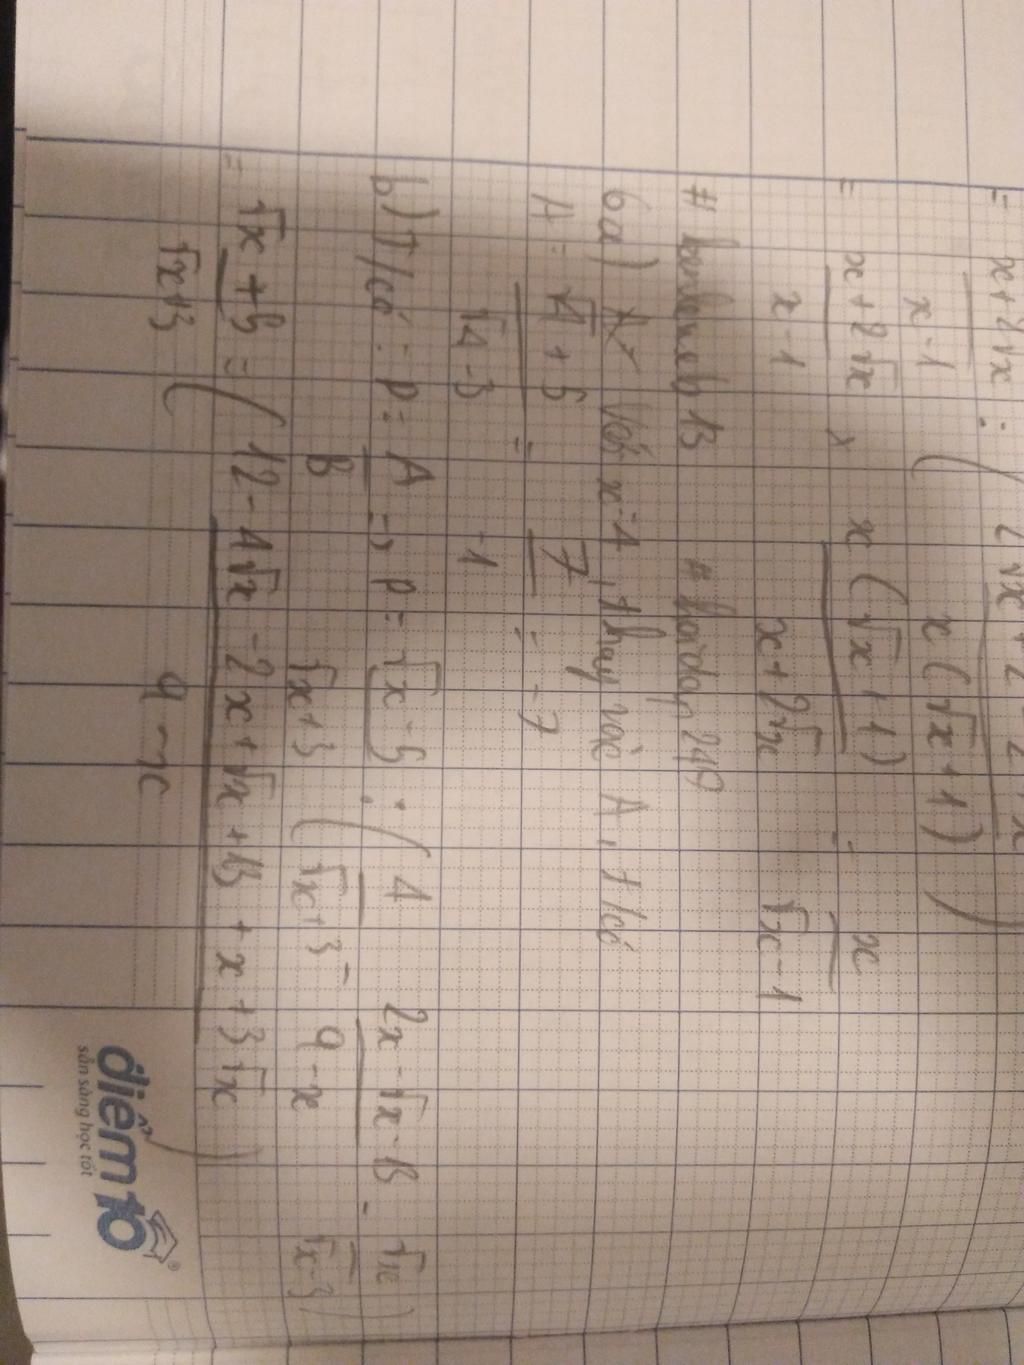 = x+2√x / x-1 : ( 2√x + 2 - 2 + x / x(√x+1) )
= x+2√x / x-1 × x(√x+1) / x+2√x = x / √x-1
13 # hoidap 247
6a) Với x=4, thay vào A, t/có
A = √4+5 / √4-3 = 7 / -1 = -7
b) T/có: P = A / B => P = √x-5 / √x+3 : ( 4 / √x+3 - 2x-√x-13 / 9-x - √x / √x-3 )
= √x+5 / √x+3 : ( 12-4√x-2x+√x+13+x+3√x / 9-x )
điểm10®
sẵn sàng học tốt